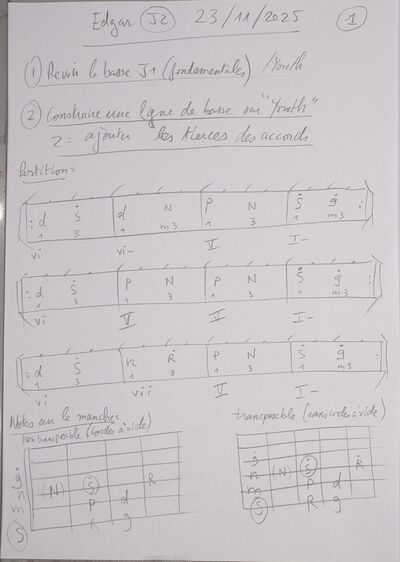 Edgar J2 23/11/2025 1
1 Revoir la basse J1 (fondamentales) / Youth
2 Construire une ligne de basse sur "Youth"
2 = ajouter les tierces des accords
Partition =
: d Ṡ d N P N Ṡ ġ :
1 3 1 m3 1 3 1 m3
vi vi- V I-
: d Ṡ P N P N Ṡ ġ :
1 3 1 3 1 3 1 m3
vi V V I-
: d Ṡ n Ṙ P N Ṡ ġ :
1 3 1 3 1 3 1 m3
vi vii V I-
Notes sur le manche =
Non transposable (Cordes à vide)
ġ
n (N) Ṡ R
m P d
S R g
transposable (sans cordes à vide)
ġ
n (N) Ṡ Ṙ
m P d
S R g